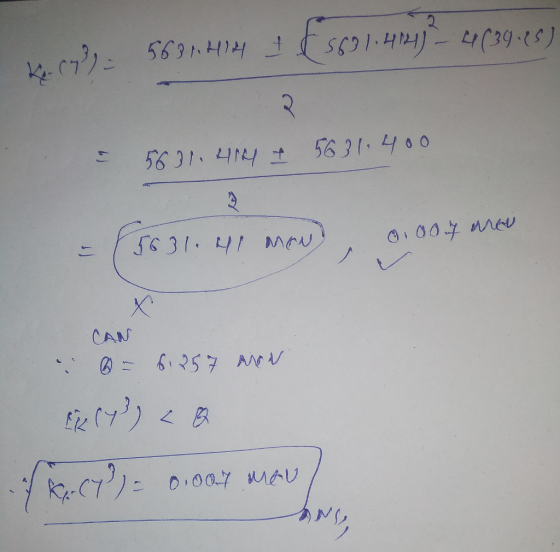 KE(γ³) = 5631.414 ± √(5631.414)² - 4(39.15)
2
= 5631.414 ± 5631.400
2
= 5631.41 MeV , 0.007 MeV
✓
X
CAN
∵ Q = 6.257 MeV
EK(γ³) < Q
∴ KE(γ³) = 0.007 MeV
ANS,